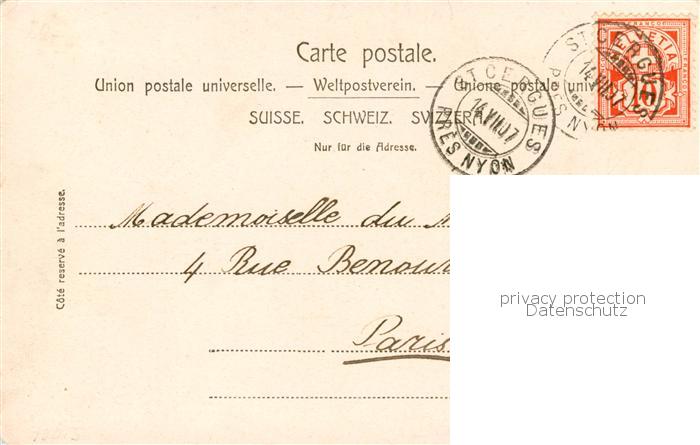 Carte postale.
Union postale universelle. — Weltpostverein. — Unione postale uni
SUISSE. SCHWEIZ. SVIZZERA
Nur für die Adresse.
ST CERGUES
PRÈS NYON
ST CERGUES
PRÈS NYON
HELVETIA
10
Côté reservé à l'adresse.
Mademoiselle du
4 Rue Benou
Paris
privacy protection
Datenschutz